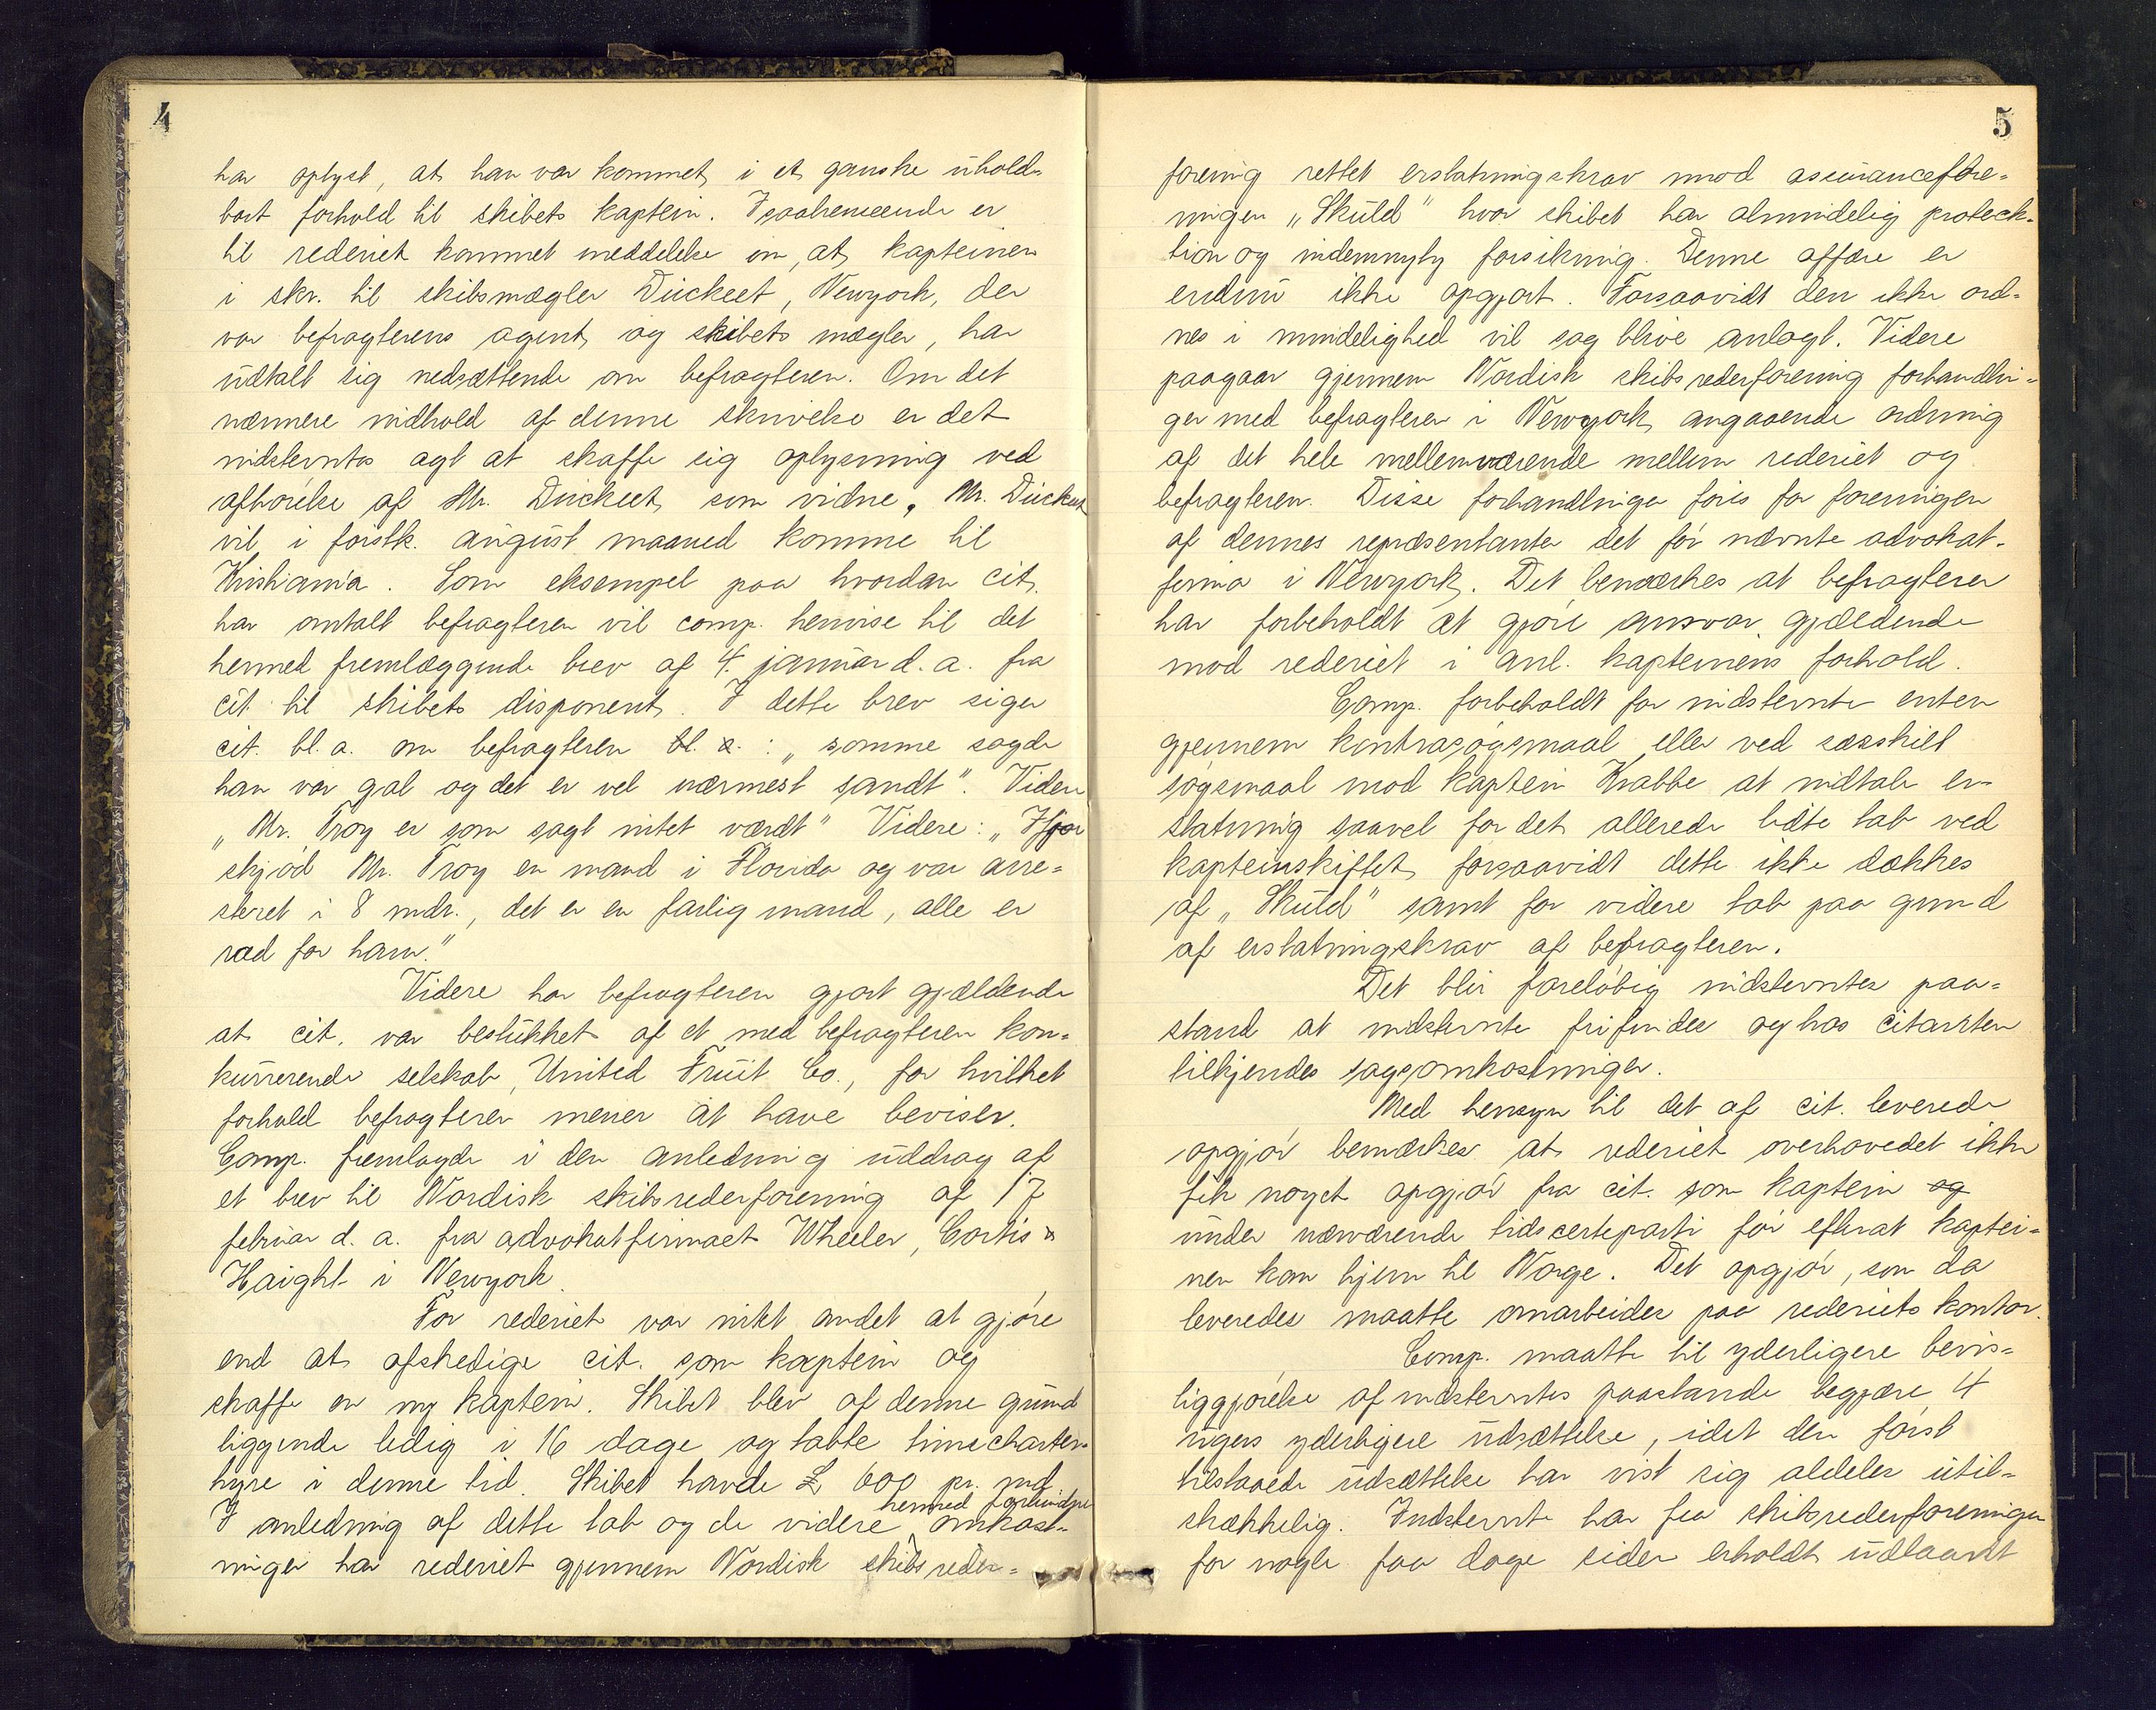 4
har oplyst, at han var kommet i et ganske uhold-
bart forhold til skibets kaptein. Isaahenseende er
til rederiet kommet meddelelse om, at kapteinen
i skr. til skibsmægler Duckeet, Newyork, der
var befragterens agent og skibets mægler, har
udtalt sig nedsættende om befragteren. Om det
nærmere indhold af denne skrivelse er det
indstevntes agt at skaffe sig oplysning ved
afhørelse af Mr. Duckeet som vidne. Mr. Duckeet
vil i førstk. august maaned komme til
Kristiania. Som eksempel paa hvordan cit.
har omtalt befragteren vil comp. henvise til det
hermed fremlæggende brev af 4. januar d. a. fra
cit. til skibets disponent. I dette brev siger
cit. bl. a. om befragteren bl. a.: „somme sagde
han var gal og det er vel nærmest sandt". Videre
„Mr. Troy er som sagt intet værdt" Videre: „Ifjor
skjød Mr. Troy en mand i Florida og var arre=
steret i 8 mdr., det er en farlig mand, alle er
rad for ham."
Videre har befragteren gjort gjældende
at cit. var bestukket af et med befragteren kon=
kurrerende selskab, United Fruit Co., for hvilket
forhold befragteren mener at have beviser.
Comp. fremlagde i den anledning uddrag af
et brev til Nordisk skibsrederforening af 17
februar d. a. fra advokatfirmaet Wheeler, Cortis &
Haight i Newyork.
For rederiet var intet andet at gjøre
end at afskedige cit. som kaptein og
skaffe en ny kaptein. Skibet blev af denne grund
liggende ledig i 16 dage og tabte timecharter-
hyre i denne tid. Skibet havde £ 600 pr. md.
hermed forbundne
I anledning af dette tab og de videre omkost-
ninger har rederiet gjennem Nordisk skibsreder=
5
forening rettet erstatningskrav mod assuranceforе=
ningen „Skuld" hvor skibet har almindelig proteck-
tion og indemnyty forsikring. Denne affære er
endnu ikke opgjort. Forsaavidt den ikke ord=
nes i mindelighed vil sag blive anlagt. Videre
paagaar gjennem Nordisk skibsrederforening forhandlin=
ger med befragteren i Newyork angaaende ordning
af det hele mellemværende mellem rederiet og
befragteren. Disse forhandlinger føres for foreningen
af dennes repræsentanter det før nævnte advokat-
firma i Newyork. Det bemærkes at befragteren
har forbeholdt at gjøre ansvar gjældende
mod rederiet i anl. kapteinens forhold.
Comp. forbeholdt for indstevnte enten
gjennem kontrasøgsmaal eller ved særskilt
søgsmaal mod kaptein Krabbe at indtale er-
statning saavel for det allerede lidte tab ved
kapteinskiftet forsaavidt dette ikke dækkes
af „Skuld" samt for videre tab paa grund
af erstatningskrav af befragteren.
Det blir foreløbig indstevntes paa=
stand at indstevnte frifindes og hos citanten
tilkjendes sagsomkostninger.
Med hensyn til det af cit. leverede
opgjør bemærkes at rederiet overhovedet ikke
fik noget opgjør fra cit. som kaptein og
under nærværende tidscerteparti før efterat kaptei=
nen kom hjem til Norge. Det opgjør, som da
leveredes maatte omarbeides paa rederiets kontor.
Comp. maatte til yderligere bevis=
liggjørelse af indstevntes paastande begjære 4
ugers yderligere udsættelse, idet den først
tilstaaede udsættelse har vist sig aldeles util=
strækkelig. Indstevnte har fra skibsrederforeningen
for nogle faa dage siden erholdt udlaant